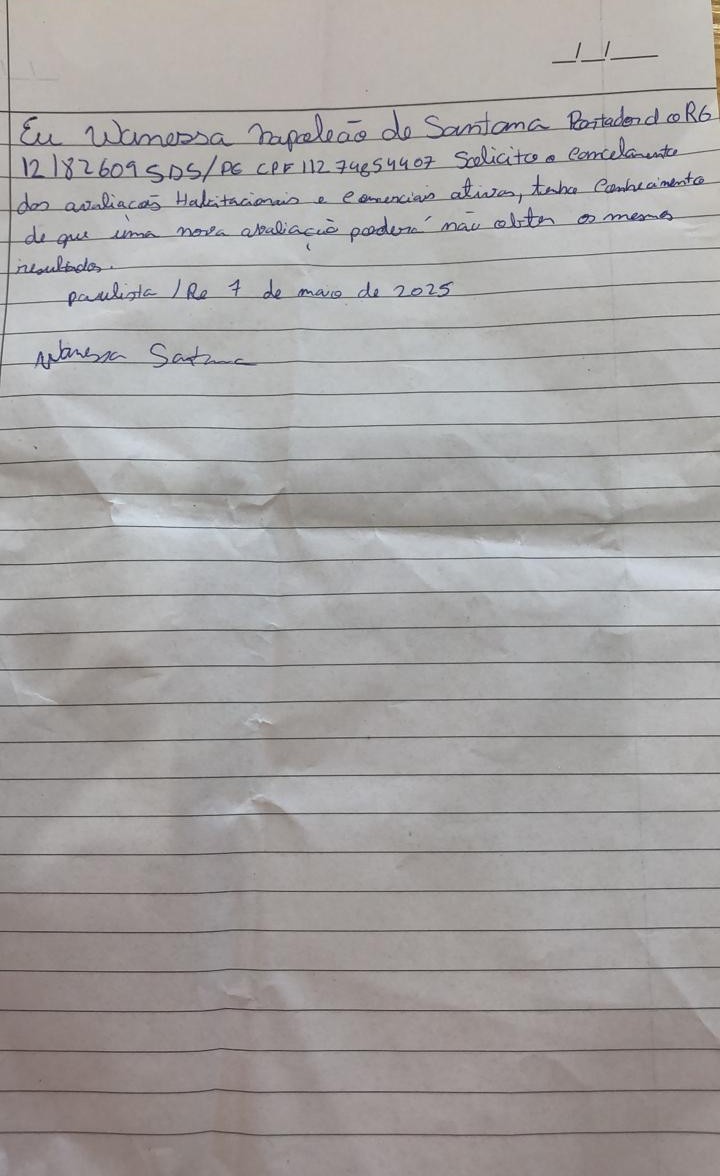 __/__/____
Eu Wanessa Napoleão de Santana Portador do RG
12182609 SDS/PE CPF 112 74654407 Solicito o Cancelamento
das avaliacoẽs Habitacionais e Comerciais ativas, tenho Conhecimento
de que uma nova avaliação poderá não obter os mesmos
resultados.
paulista / Re 7 de maio de 2025
Wanessa Santana